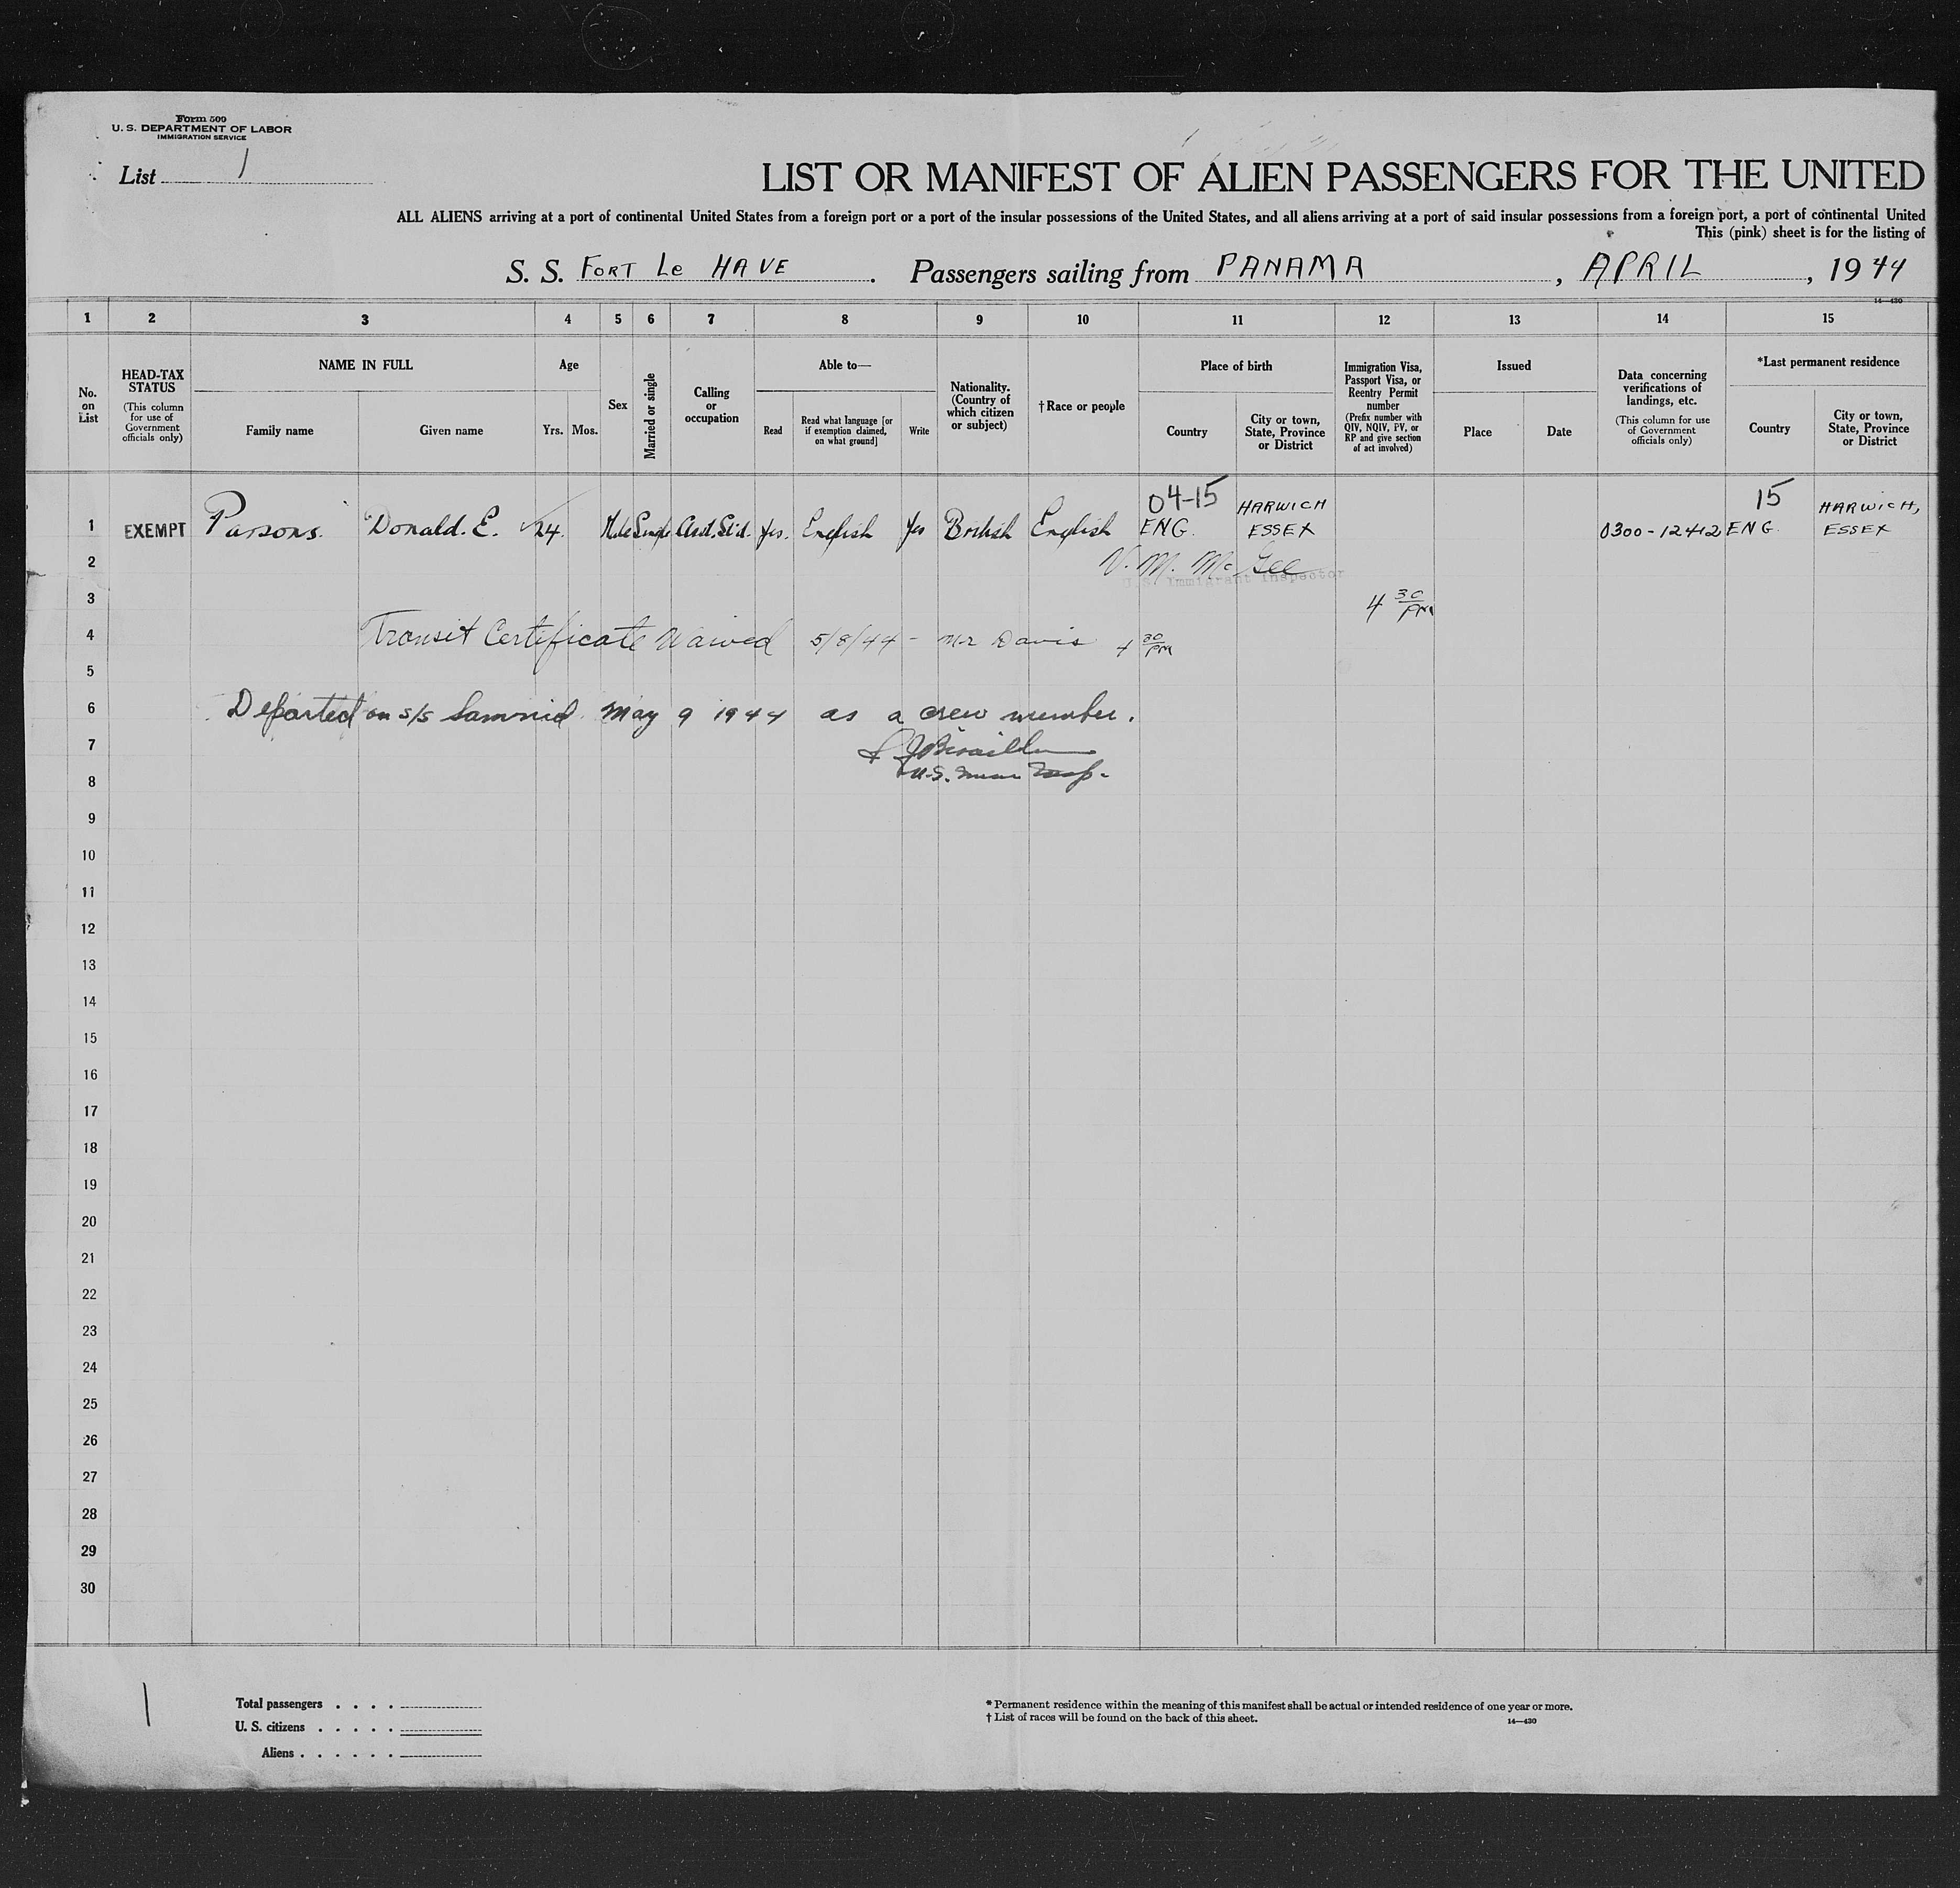 Form 509
U. S. DEPARTMENT OF LABOR
IMMIGRATION SERVICE
List 1
LIST OR MANIFEST OF ALIEN PASSENGERS FOR THE UNITED
ALL ALIENS arriving at a port of continental United States from a foreign port or a port of the insular possessions of the United States, and all aliens arriving at a port of said insular possessions from a foreign port, a port of continental United
This (pink) sheet is for the listing of
S. S. FORT Le HAVE . Passengers sailing from PANAMA , APRIL , 1944
14—430
1 2 3 4 5 6 7 8 9 10 11 12 13 14 15
No. on List
HEAD-TAX STATUS (This column for use of Government officials only)
NAME IN FULL
Family name
Given name
Age
Yrs. Mos.
Sex
Married or single
Calling or occupation
Able to—
Read
Read what language [or if exemption claimed, on what ground]
Write
Nationality. (Country of which citizen or subject)
†Race or people
Place of birth
Country
City or town, State, Province or District
Immigration Visa, Passport Visa, or Reentry Permit number (Prefix number with QIV, NQIV, PV, or RP and give section of act involved)
Issued
Place
Date
Data concerning verifications of landings, etc. (This column for use of Government officials only)
*Last permanent residence
Country
City or town, State, Province or District
04-15 HARWICH 15 HARWICH,
1 EXEMPT Parsons. Donald. E. 24. Male Single Asst. Std. Yes. English Yes British English ENG. ESSEX 0300-12412 ENG. ESSEX
2 V. M. McGee
U.S. Immigrant Inspector
3 4 30 PM
4 Transit Certificate Waived 5/8/44 - Mr Davis 4 30 PM
5
6 Departed on s/s Samnid. May 9 1944 as a crew member.
7
8 U.S. Insp.
9
10
11
12
13
14
15
16
17
18
19
20
21
22
23
24
25
26
27
28
29
30
1
Total passengers . . . .
U. S. citizens . . . . .
Aliens . . . . . .
* Permanent residence within the meaning of this manifest shall be actual or intended residence of one year or more.
† List of races will be found on the back of this sheet.
14—430